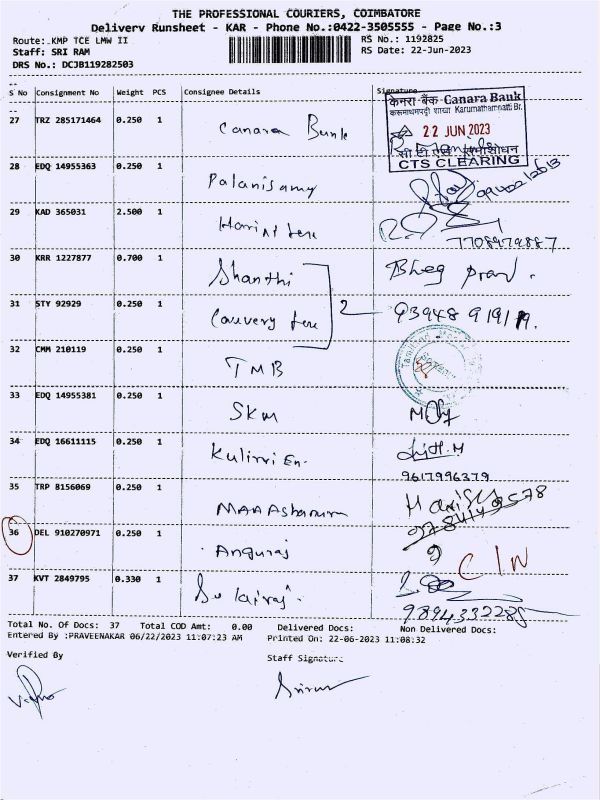 THE PROFESSIONAL COURIERS, COIMBATORE
Delivery Runsheet - KAR - Phone No.:0422-3505555 - Page No.:3
Route: KMP TCE LMW II
RS No.: 1192825
Staff: SRI RAM
RS Date: 22-Jun-2023
DRS No.: DCJB119282503
S No Consignment No Weight PCS Consignee Details Signature
27 TRZ 285171464 0.250 1 Canara Bank
केनरा बैंक Canara Bank
करूमाथमपट्टी शाखा Karumathampatti Br.
22 JUN 2023
सी टी एस समाशोधन
CTS CLEARING
28 EDQ 14955363 0.250 1 Palanisamy
29 KAD 365031 2.500 1
7708979887
30 KRR 1227877 0.700 1 Shanthi
31 STY 92929 0.250 1 Cauvery
2
32 CMM 210119 0.250 1 TMB
33 EDQ 14955381 0.250 1 SKM
34 EDQ 16611115 0.250 1
9617996379
35 TRP 8156069 0.250 1
36 DEL 910270971 0.250 1 Anguraj
37 KVT 2849795 0.330 1
Total No. Of Docs: 37 Total COD Amt: 0.00 Delivered Docs: Non Delivered Docs:
Entered By :PRAVEENAKAR 06/22/2023 11:07:23 AM Printed On: 22-06-2023 11:08:32
Verified By
Staff Signature